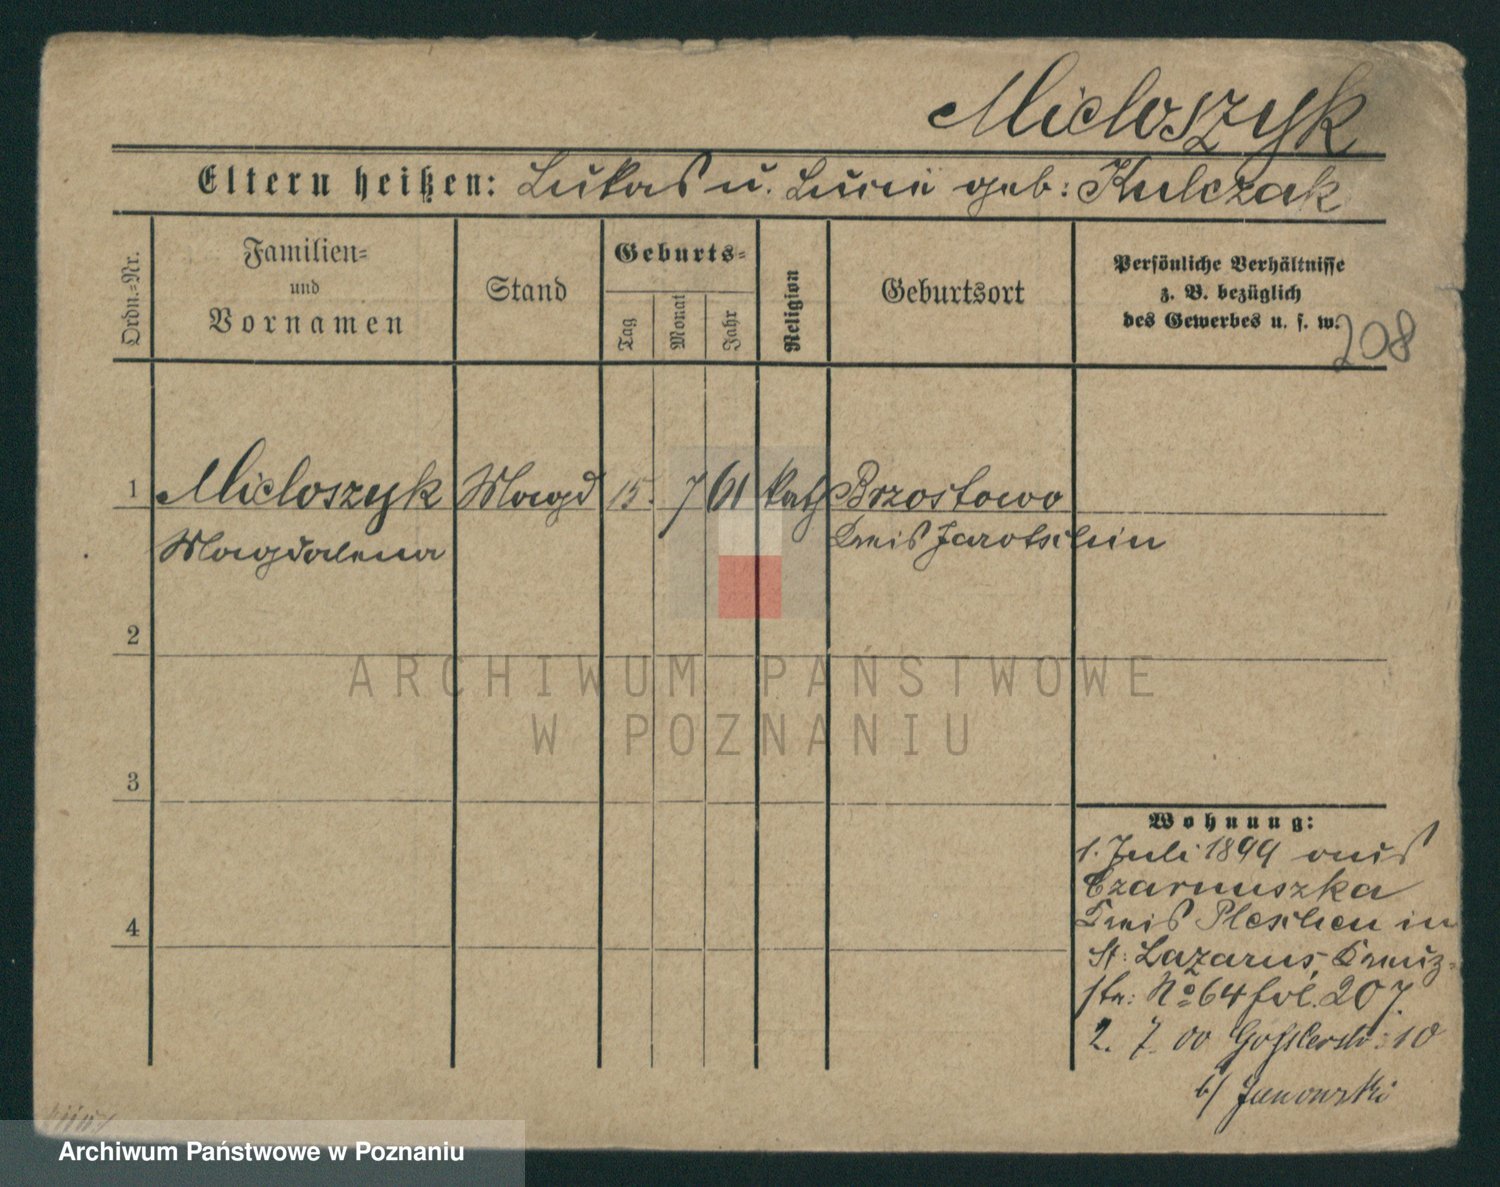 Micloszyk
Eltern heißen: Lukas u. Lucie geb: Kulczak
Ordn.=Nr.
Familien=
und
Vornamen
Stand
Geburts=
Tag
Monat
Jahr
Religion
Geburtsort
Persönliche Verhältnisse
z. B. bezüglich
des Gewerbes u. s. w.
208
1 Micloszyk Magd 15. 7 61 kath Brzostowo
Magdalena Kreis Jarotschin
2
3
4
ARCHIWUM PAŃSTWOWE
W POZNANIU
Wohnung:
1. Juli 1899 aus
Czarnuszka
Kreis Pleschen in
St: Lazarus, Kreuz=
str: No 64 fol. 207.
2. 7. 00 Gosslerstr. 10
b/ Janowski
Archiwum Państwowe w Poznaniu